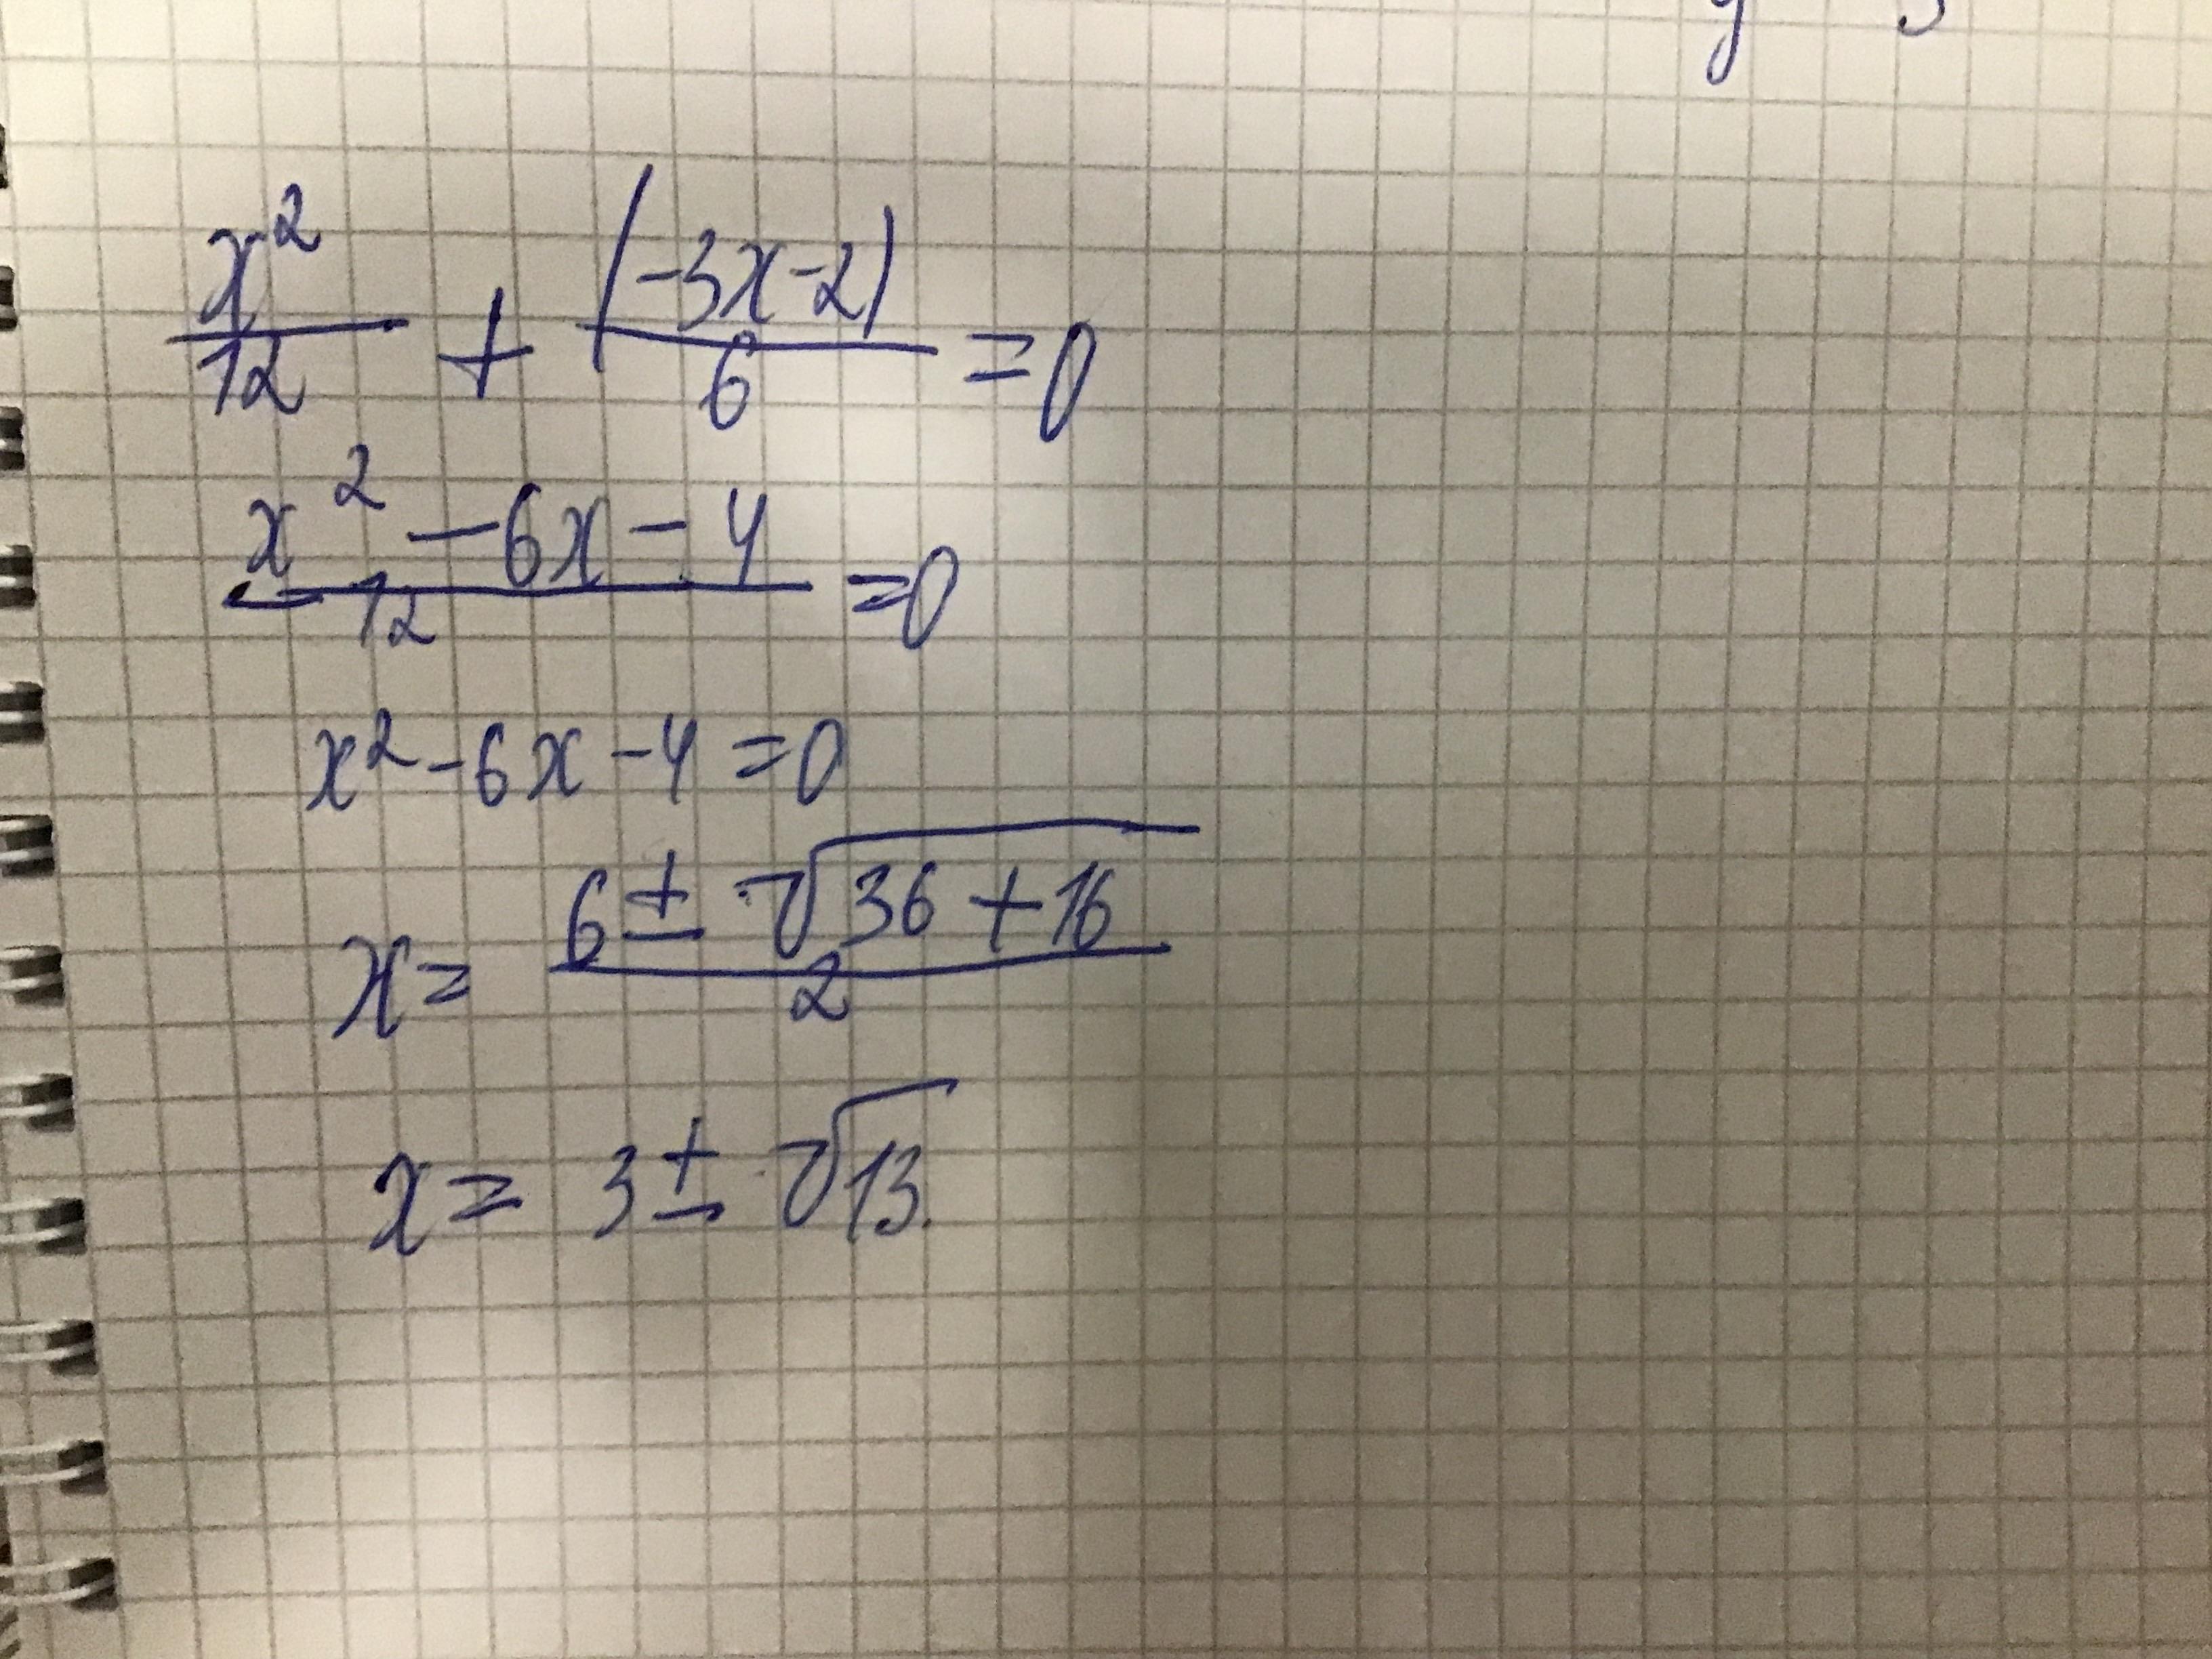 x²/12 + (-3x-2)/6 = 0
x² - 6x - 4/12 = 0
x² - 6x - 4 = 0
x = 6 ± √36 + 16/2
x = 3 ± √13.